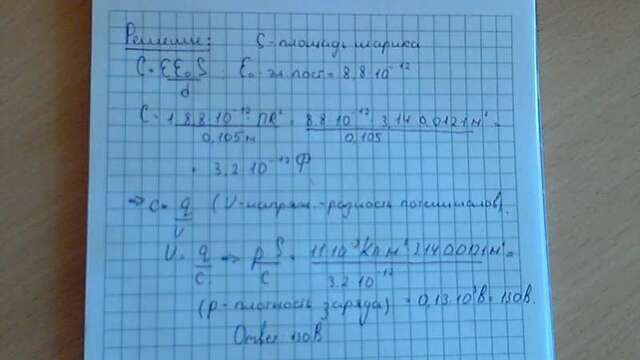 Решение: S-площадь шарика
C=εε₀S/d ; ε₀-эл. пост=8,8·10⁻¹²
C=1·8,8·10⁻¹²·ПR²/0,105м = 8,8·10⁻¹²·3,14·0,0121м²/0,105 =
= 3,2·10⁻¹²Ф
⇒ C=q/U (U-напряж.-разность потенциалов).
U=q/C ⇒ ρS/C = 11·10⁻⁹Кл м² 3,14·0,0121м²/3.2·10⁻¹² =
(ρ-плотность заряда) = 0,13·10³В = 130В.
Ответ 130В